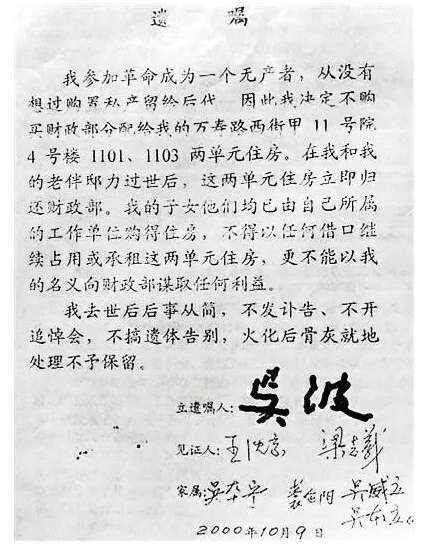 遗 嘱
我参加革命成为一个无产者，从没有
想过购置私产留给后代。因此我决定不购
买财政部分配给我的万寿路西街甲 11 号院
4 号楼 1101、1103 两单元住房。在我和我
的老伴邸力过世后，这两单元住房立即归
还财政部。我的子女他们均已由自己所属
的工作单位购得住房，不得以任何借口继
续占用或承租这两单元住房，更不能以我
的名义向财政部谋取任何利益。
我去世后后事从简，不发讣告、不开
追悼会，不搞遗体告别，火化后骨灰就地
处理不予保留。
立遗嘱人：吴波
见证人：王 梁志义
家属：吴本宁 吴威立
吴本立
2000年10月9日